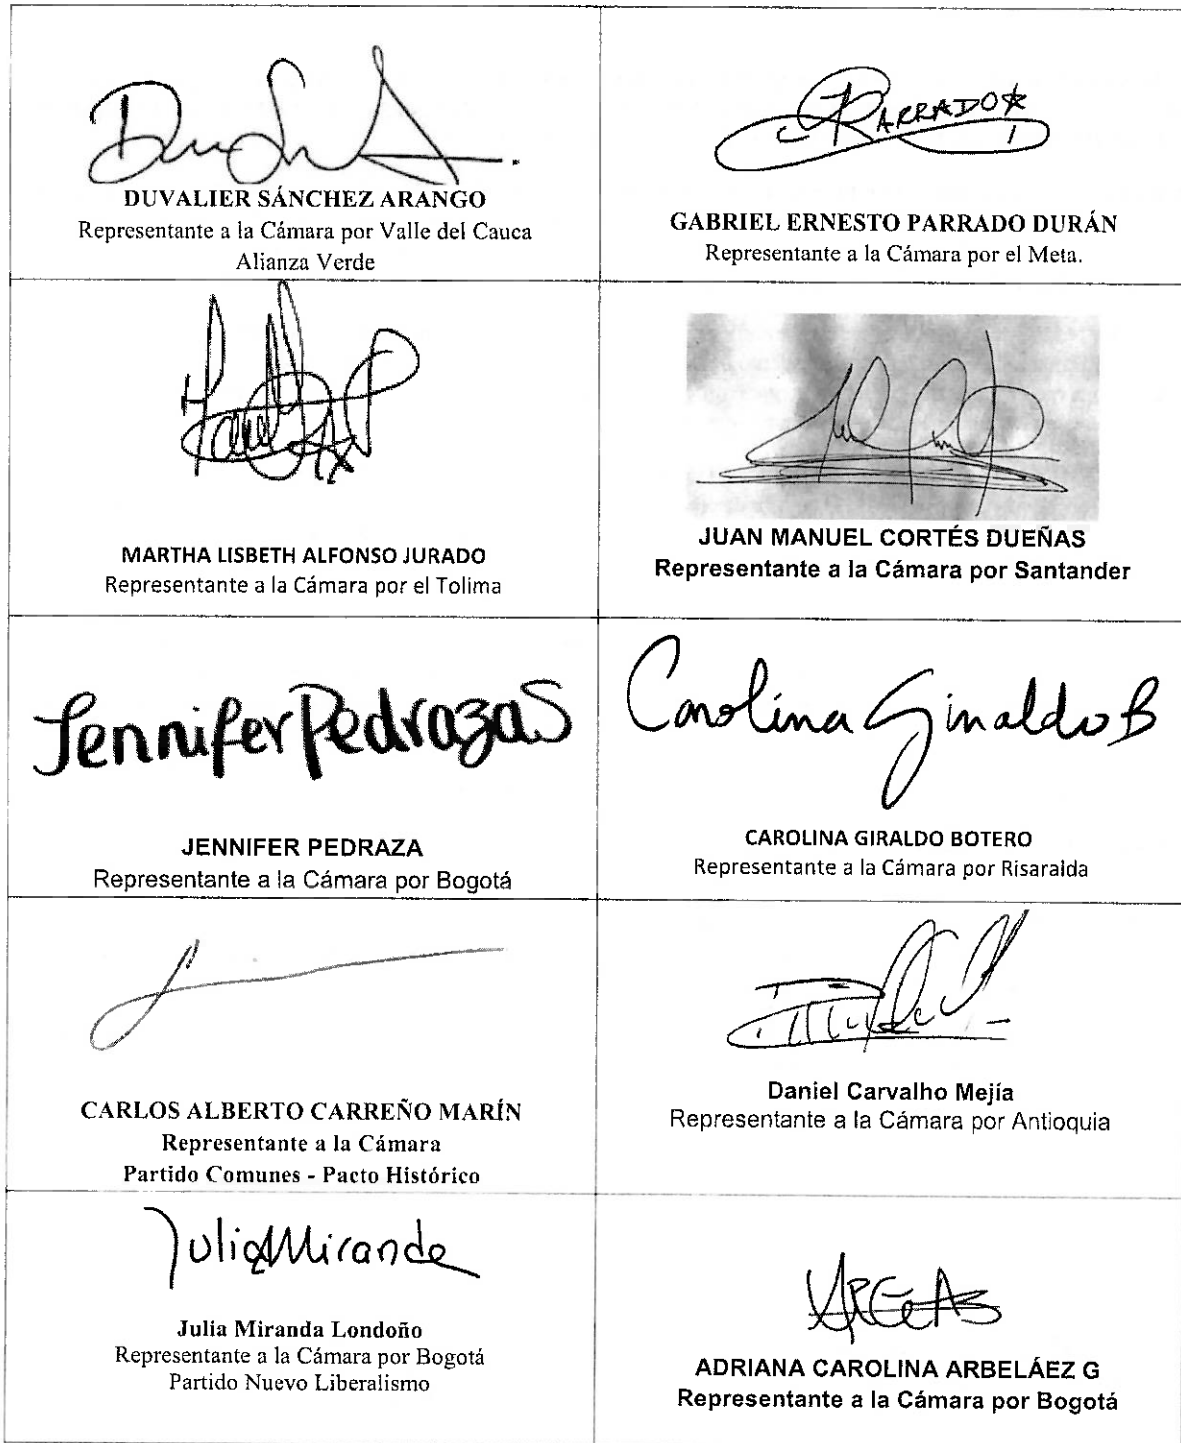 PARRADO
DUVALIER SÁNCHEZ ARANGO
Representante a la Cámara por Valle del Cauca
Alianza Verde
GABRIEL ERNESTO PARRADO DURÁN
Representante a la Cámara por el Meta.
MARTHA LISBETH ALFONSO JURADO
Representante a la Cámara por el Tolima
JUAN MANUEL CORTÉS DUEÑAS
Representante a la Cámara por Santander
Jennifer Pedraza S
JENNIFER PEDRAZA
Representante a la Cámara por Bogotá
Carolina Giraldo B
CAROLINA GIRALDO BOTERO
Representante a la Cámara por Risaralda
CARLOS ALBERTO CARREÑO MARÍN
Representante a la Cámara
Partido Comunes - Pacto Histórico
Daniel Carvalho Mejía
Representante a la Cámara por Antioquia
Julia Miranda
Julia Miranda Londoño
Representante a la Cámara por Bogotá
Partido Nuevo Liberalismo
ADRIANA CAROLINA ARBELÁEZ G
Representante a la Cámara por Bogotá